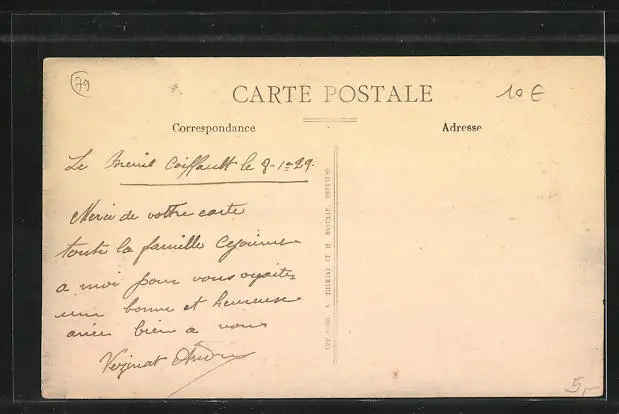 79
CARTE POSTALE
10 €
Correspondance
Adresse
Le Breuil Coiffault le 8-1-29
Merci de vottre carte
toute la famille cejoiens
a moi pour vous
une bonne et heureuse
anée bien a vous
André
5,-